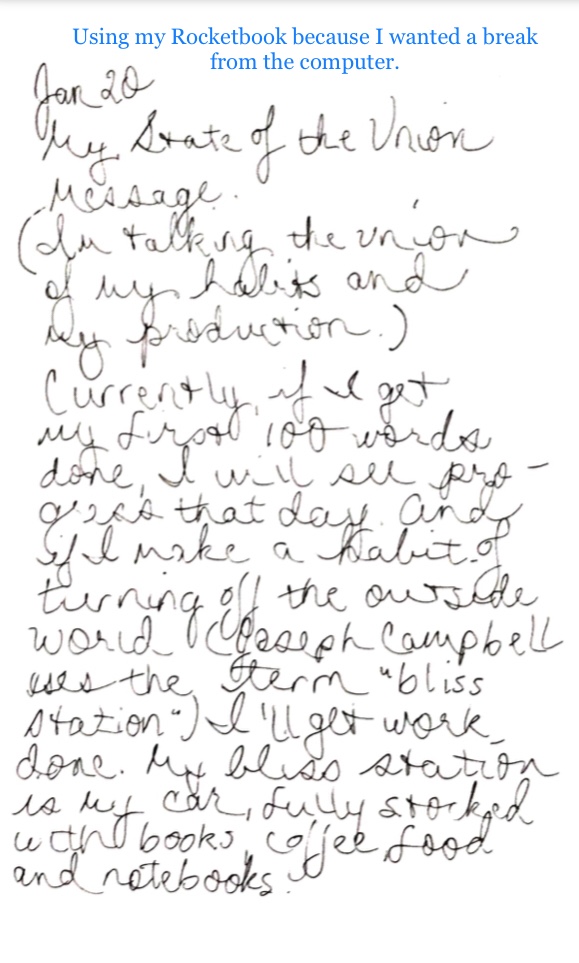 Using my Rocketbook because I wanted a break
from the computer.
Jan 20
My State of the Union
Message.
(I'm talking the union
of my habits and
my production.)
Currently, if I get
my first 100 words
done, I will see pro-
gress that day. And
if I make a habit of
turning off the outside
world (Joseph Campbell
uses the term "bliss
station") I'll get work
done. My bliss station
is my car, fully stocked
with books, coffee, food
and notebooks.